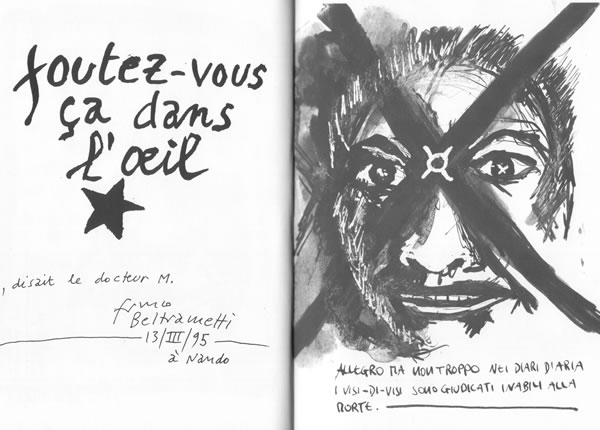 foutez-vous
ça dans
l'œil
, disait le docteur M.
franco
Beltrametti
13/III/95
à Nando
ALLEGRO MA NON TROPPO NEI DIARI D'ARIA
I VISI-DI-VISI SONO GIUDICATI INABILI ALLA
MORTE.